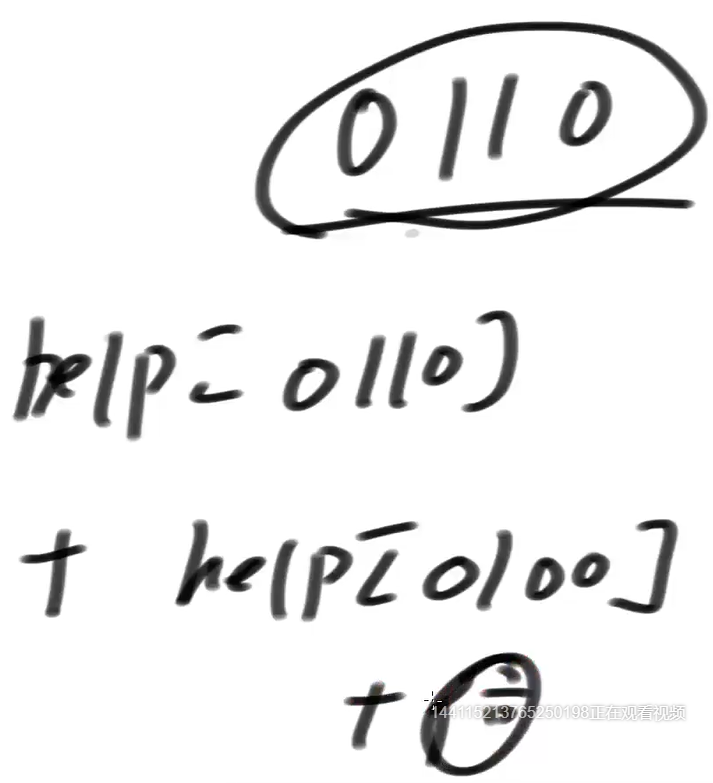 0110
help[0110]
+ help[0100]
+
144115213765250198正在观看视频